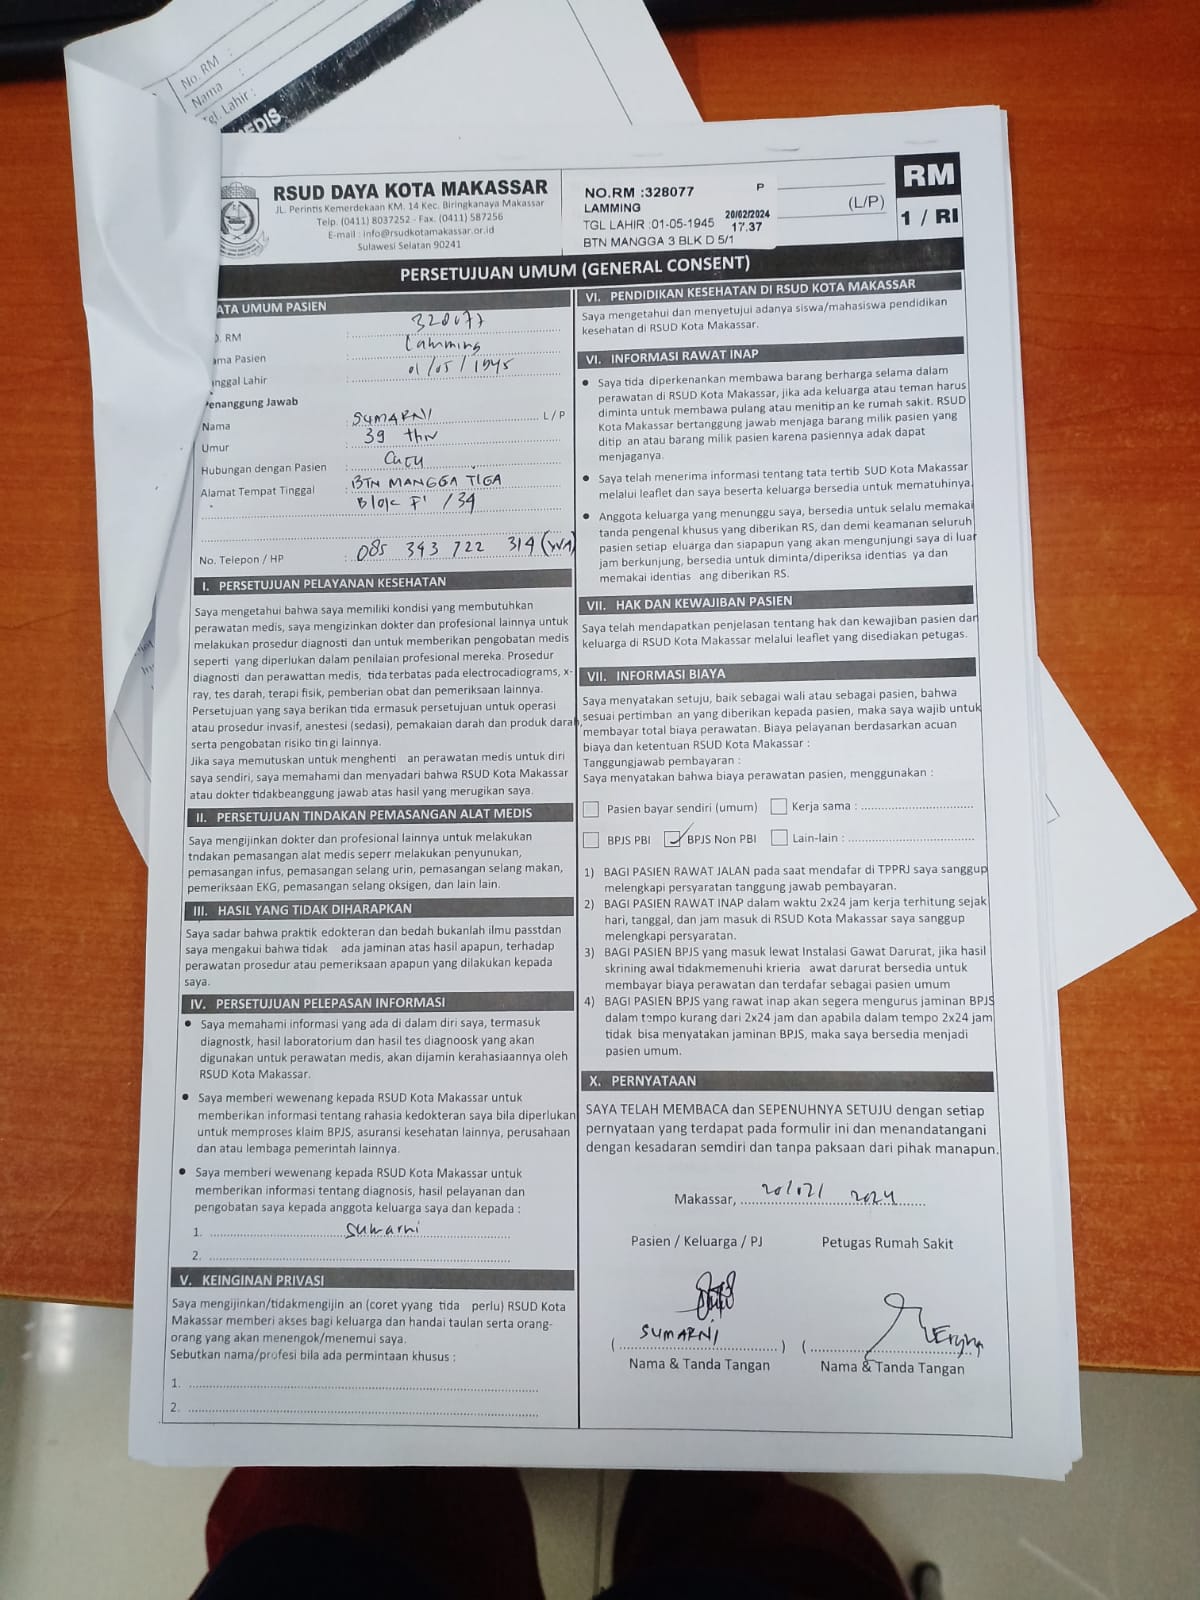 No. RM :
Nama :
Tgl. Lahir :
EDIS
RSUD DAYA KOTA MAKASSAR
JL. Perintis Kemerdekaan KM. 14 Kec. Biringkanaya Makassar
Telp. (0411) 8037252 - Fax. (0411) 587256
E-mail : info@rsudkotamakassar.or.id
Sulawesi Selatan 90241
NO.RM :328077 P
LAMMING
TGL LAHIR :01-05-1945 20/02/2024 17.37
BTN MANGGA 3 BLK D 5/1
(L/P)
RM
1 / RI
PERSETUJUAN UMUM (GENERAL CONSENT)
ATA UMUM PASIEN
. RM : 328077
ma Pasien : Lamming
nggal Lahir : 01/05/1945
Penanggung Jawab
Nama : SUMARNI L / P
Umur : 39 thn
Hubungan dengan Pasien : Cucu
Alamat Tempat Tinggal : BTN MANGGA TIGA
Blok F1 /34
No. Telepon / HP : 085 343 722 314 (WA)
I. PERSETUJUAN PELAYANAN KESEHATAN
Saya mengetahui bahwa saya memiliki kondisi yang membutuhkan
perawatan medis, saya mengizinkan dokter dan profesional lainnya untuk
melakukan prosedur diagnosti dan untuk memberikan pengobatan medis
seperti yang diperlukan dalam penilaian profesional mereka. Prosedur
diagnosti dan perawattan medis, tida terbatas pada electrocadiograms, x-
ray, tes darah, terapi fisik, pemberian obat dan pemeriksaan lainnya.
Persetujuan yang saya berikan tida ermasuk persetujuan untuk operasi
atau prosedur invasif, anestesi (sedasi), pemakaian darah dan produk darah,
serta pengobatan risiko tin gi lainnya.
Jika saya memutuskan untuk menghenti an perawatan medis untuk diri
saya sendiri, saya memahami dan menyadari bahwa RSUD Kota Makassar
atau dokter tidakbeanggung jawab atas hasil yang merugikan saya.
II. PERSETUJUAN TINDAKAN PEMASANGAN ALAT MEDIS
Saya mengijinkan dokter dan profesional lainnya untuk melakukan
tndakan pemasangan alat medis seperr melakukan penyunukan,
pemasangan infus, pemasangan selang urin, pemasangan selang makan,
pemeriksaan EKG, pemasangan selang oksigen, dan lain lain.
III. HASIL YANG TIDAK DIHARAPKAN
Saya sadar bahwa praktik edokteran dan bedah bukanlah ilmu passtdan
saya mengakui bahwa tidak ada jaminan atas hasil apapun, terhadap
perawatan prosedur atau pemeriksaan apapun yang dilakukan kepada
saya.
IV. PERSETUJUAN PELEPASAN INFORMASI
● Saya memahami informasi yang ada di dalam diri saya, termasuk
diagnostk, hasil laboratorium dan hasil tes diagnoosk yang akan
digunakan untuk perawatan medis, akan dijamin kerahasiaannya oleh
RSUD Kota Makassar.
● Saya memberi wewenang kepada RSUD Kota Makassar untuk
memberikan informasi tentang rahasia kedokteran saya bila diperlukan
untuk memproses klaim BPJS, asuransi kesehatan lainnya, perusahaan
dan atau lembaga pemerintah lainnya.
● Saya memberi wewenang kepada RSUD Kota Makassar untuk
memberikan informasi tentang diagnosis, hasil pelayanan dan
pengobatan saya kepada anggota keluarga saya dan kepada :
1. Sumarni
2.
V. KEINGINAN PRIVASI
Saya mengijinkan/tidakmengijin an (coret yyang tida perlu) RSUD Kota
Makassar memberi akses bagi keluarga dan handai taulan serta orang-
orang yang akan menengok/menemui saya.
Sebutkan nama/profesi bila ada permintaan khusus :
1.
2.
VI. PENDIDIKAN KESEHATAN DI RSUD KOTA MAKASSAR
Saya mengetahui dan menyetujui adanya siswa/mahasiswa pendidikan
kesehatan di RSUD Kota Makassar.
VI. INFORMASI RAWAT INAP
● Saya tida diperkenankan membawa barang berharga selama dalam
perawatan di RSUD Kota Makassar, jika ada keluarga atau teman harus
diminta untuk membawa pulang atau menitip an ke rumah sakit. RSUD
Kota Makassar bertanggung jawab menjaga barang milik pasien yang
ditip an atau barang milik pasien karena pasiennya adak dapat
menjaganya.
● Saya telah menerima informasi tentang tata tertib SUD Kota Makassar
melalui leaflet dan saya beserta keluarga bersedia untuk mematuhinya.
● Anggota keluarga yang menunggu saya, bersedia untuk selalu memakai
tanda pengenal khusus yang diberikan RS, dan demi keamanan seluruh
pasien setiap eluarga dan siapapun yang akan mengunjungi saya di luar
jam berkunjung, bersedia untuk diminta/diperiksa identias ya dan
memakai identias ang diberikan RS.
VII. HAK DAN KEWAJIBAN PASIEN
Saya telah mendapatkan penjelasan tentang hak dan kewajiban pasien dan
keluarga di RSUD Kota Makassar melalui leaflet yang disediakan petugas.
VII. INFORMASI BIAYA
Saya menyatakan setuju, baik sebagai wali atau sebagai pasien, bahwa
sesuai pertimban an yang diberikan kepada pasien, maka saya wajib untuk
membayar total biaya perawatan. Biaya pelayanan berdasarkan acuan
biaya dan ketentuan RSUD Kota Makassar :
Tanggungjawab pembayaran :
Saya menyatakan bahwa biaya perawatan pasien, menggunakan :
Pasien bayar sendiri (umum) Kerja sama :
BPJS PBI ✓ BPJS Non PBI Lain-lain :
1) BAGI PASIEN RAWAT JALAN pada saat mendafar di TPPRJ saya sanggup
melengkapi persyaratan tanggung jawab pembayaran.
2) BAGI PASIEN RAWAT INAP dalam waktu 2x24 jam kerja terhitung sejak
hari, tanggal, dan jam masuk di RSUD Kota Makassar saya sanggup
melengkapi persyaratan.
3) BAGI PASIEN BPJS yang masuk lewat Instalasi Gawat Darurat, jika hasil
skrining awal tidakmemenuhi krieria awat darurat bersedia untuk
membayar biaya perawatan dan terdafar sebagai pasien umum
4) BAGI PASIEN BPJS yang rawat inap akan segera mengurus jaminan BPJS
dalam tempo kurang dari 2x24 jam dan apabila dalam tempo 2x24 jam
tidak bisa menyatakan jaminan BPJS, maka saya bersedia menjadi
pasien umum.
X. PERNYATAAN
SAYA TELAH MEMBACA dan SEPENUHNYA SETUJU dengan setiap
pernyataan yang terdapat pada formulir ini dan menandatangani
dengan kesadaran semdiri dan tanpa paksaan dari pihak manapun.
Makassar, 20/02/ 2024
Pasien / Keluarga / PJ Petugas Rumah Sakit
( SUMARNI ) ( )
Nama & Tanda Tangan Nama & Tanda Tangan